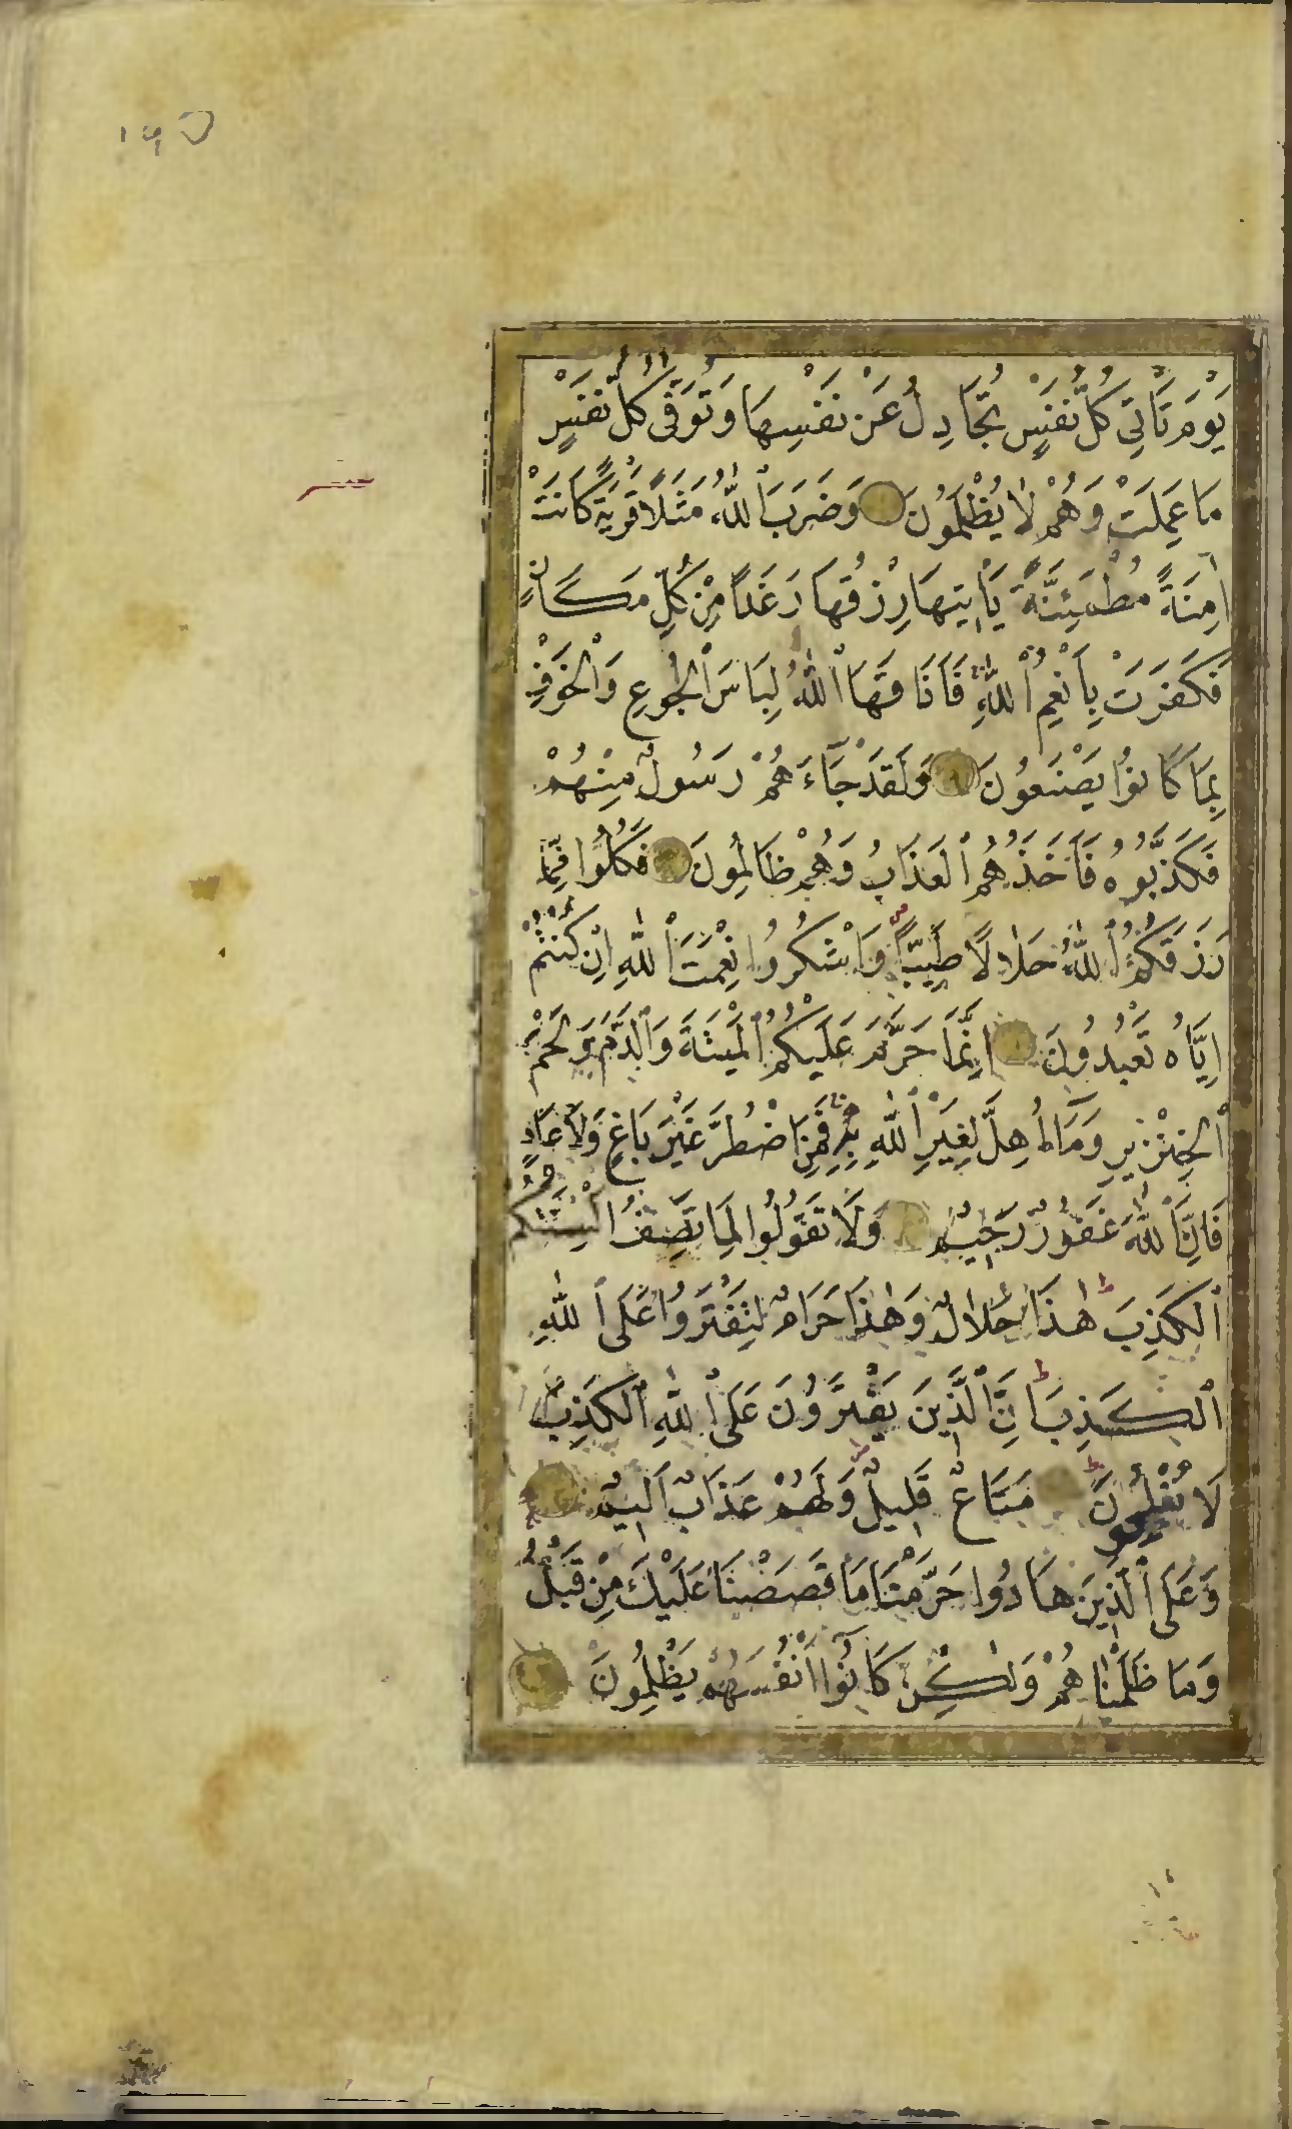 ١٩٥
يَوْمَ تَأْتِي كُلُّ نَفْسٍ تُجَادِلُ عَنْ نَفْسِهَا وَتُوَفَّى كُلُّ نَفْسٍ
مَا عَمِلَتْ وَهُمْ لَا يُظْلَمُونَ وَضَرَبَ ٱللّٰهُ مَثَلًا قَرْيَةً كَانَتْ
اٰمِنَةً مُطْمَئِنَّةً يَأْتِيهَا رِزْقُهَا رَغَدًا مِنْ كُلِّ مَكَانٍ
فَكَفَرَتْ بِأَنْعُمِ ٱللّٰهِ فَأَذَاقَهَا ٱللّٰهُ لِبَاسَ ٱلْجُوعِ وَٱلْخَوْفِ
بِمَا كَانُوا يَصْنَعُونَ وَلَقَدْ جَآءَهُمْ رَسُولٌ مِنْهُمْ
فَكَذَّبُوهُ فَأَخَذَهُمُ ٱلْعَذَابُ وَهُمْ ظَالِمُونَ فَكُلُوا مِمَّا
رَزَقَكُمُ ٱللّٰهُ حَلَالًا طَيِّبًا وَاشْكُرُوا نِعْمَتَ ٱللّٰهِ اِنْ كُنْتُمْ
اِيَّاهُ تَعْبُدُونَ اِنَّمَا حَرَّمَ عَلَيْكُمُ ٱلْمَيْتَةَ وَٱلدَّمَ وَلَحْمَ
ٱلْخِنْزِيرِ وَمَآ اُهِلَّ لِغَيْرِ ٱللّٰهِ بِهِ فَمَنِ اضْطُرَّ غَيْرَ بَاغٍ وَلَا عَادٍ
فَاِنَّ ٱللّٰهَ غَفُورٌ رَحِيمٌ وَلَا تَقُولُوا لِمَا تَصِفُ اَلْسِنَتُكُمُ
ٱلْكَذِبَ هٰذَا حَلَالٌ وَهٰذَا حَرَامٌ لِتَفْتَرُوا عَلَى ٱللّٰهِ
ٱلْكَذِبَ اِنَّ ٱلَّذِينَ يَفْتَرُونَ عَلَى ٱللّٰهِ ٱلْكَذِبَ
لَا يُفْلِحُونَ مَتَاعٌ قَلِيلٌ وَلَهُمْ عَذَابٌ اَلِيمٌ
وَعَلَى ٱلَّذِينَ هَادُوا حَرَّمْنَا مَا قَصَصْنَا عَلَيْكَ مِنْ قَبْلُ
وَمَا ظَلَمْنَاهُمْ وَلٰكِنْ كَانُوٓا اَنْفُسَهُمْ يَظْلِمُونَ